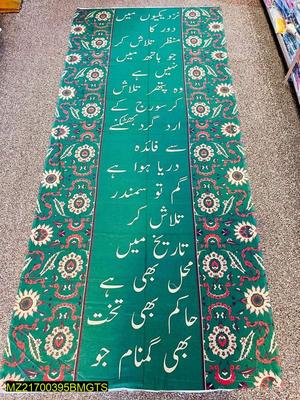 نزدیکیوں میں
دور کا
منظر تلاش کر
جو ہاتھ میں
نہیں ہے
وہ پتھر تلاش
کر سورج کے
ارد گرد بھٹکنے
سے فائدہ
دریا ہوا ہے
گم تو سمندر
تلاش کر
تاریخ میں
محل بھی ہے
حاکم بھی تخت
بھی گمنام جو
MZ21700395BMGTS